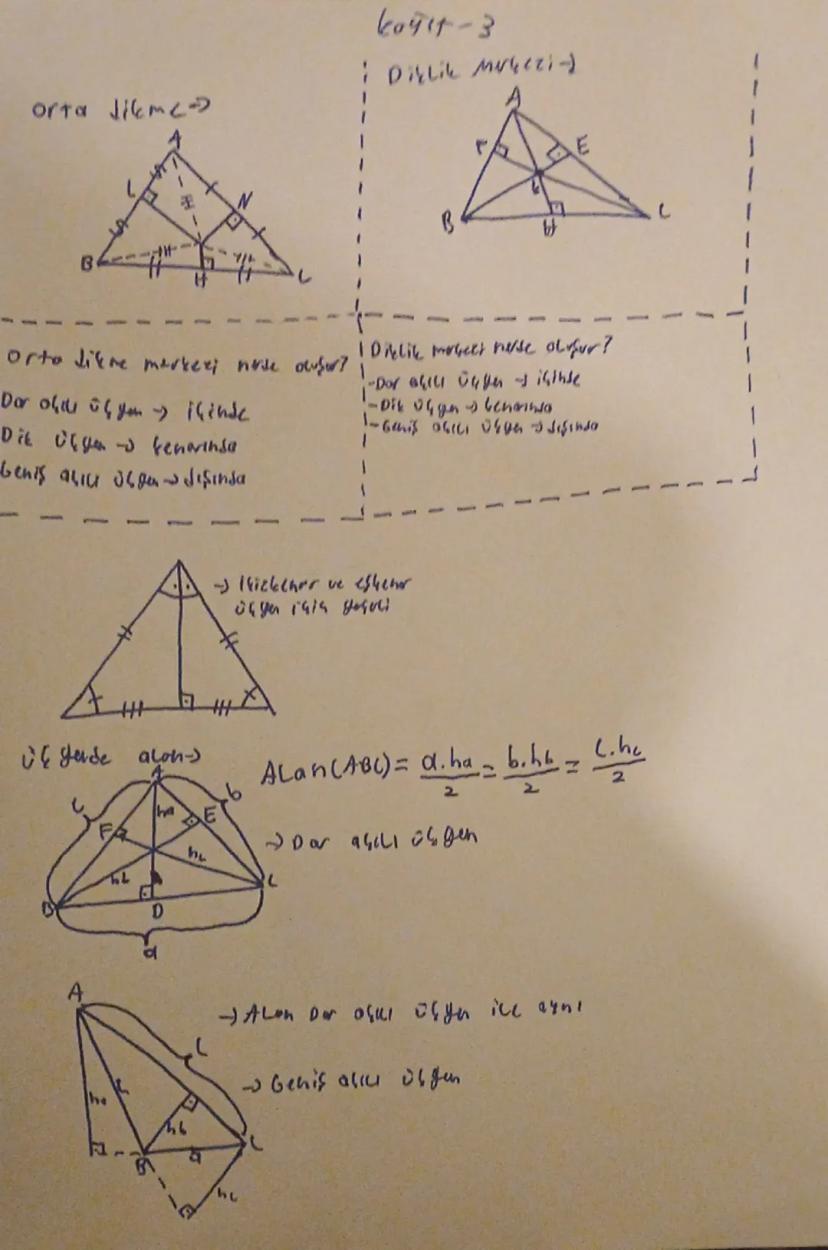 kağıt-3
Orta dikme→
A
L
N
B
H
C
Diklik Merkezi→
A
F
E
B
H
C
Orta dikme merkezi nerde oluşur?
Dar açılı üçgen → içinde
Dik üçgen → kenarında
Geniş açılı üçgen → dışında
Diklik merkezi nerde oluşur?
-Dar açılı üçgen → içinde
-Dik üçgen → kenarında
-Geniş açılı üçgen → dışında
→ İkizkenar ve eşkenar
üçgen için geçerli
üçgende alan→
Alan(ABC) = a.ha/2 = b.hb/2 = c.hc/2
A
c
b
ha
F
E
hc
hb
B
D
C
a
→ Dar açılı üçgen
A
→ Alan Dar açılı üçgen ile aynı
→ Geniş açılı üçgen
ha
hb
B
a
C
hc